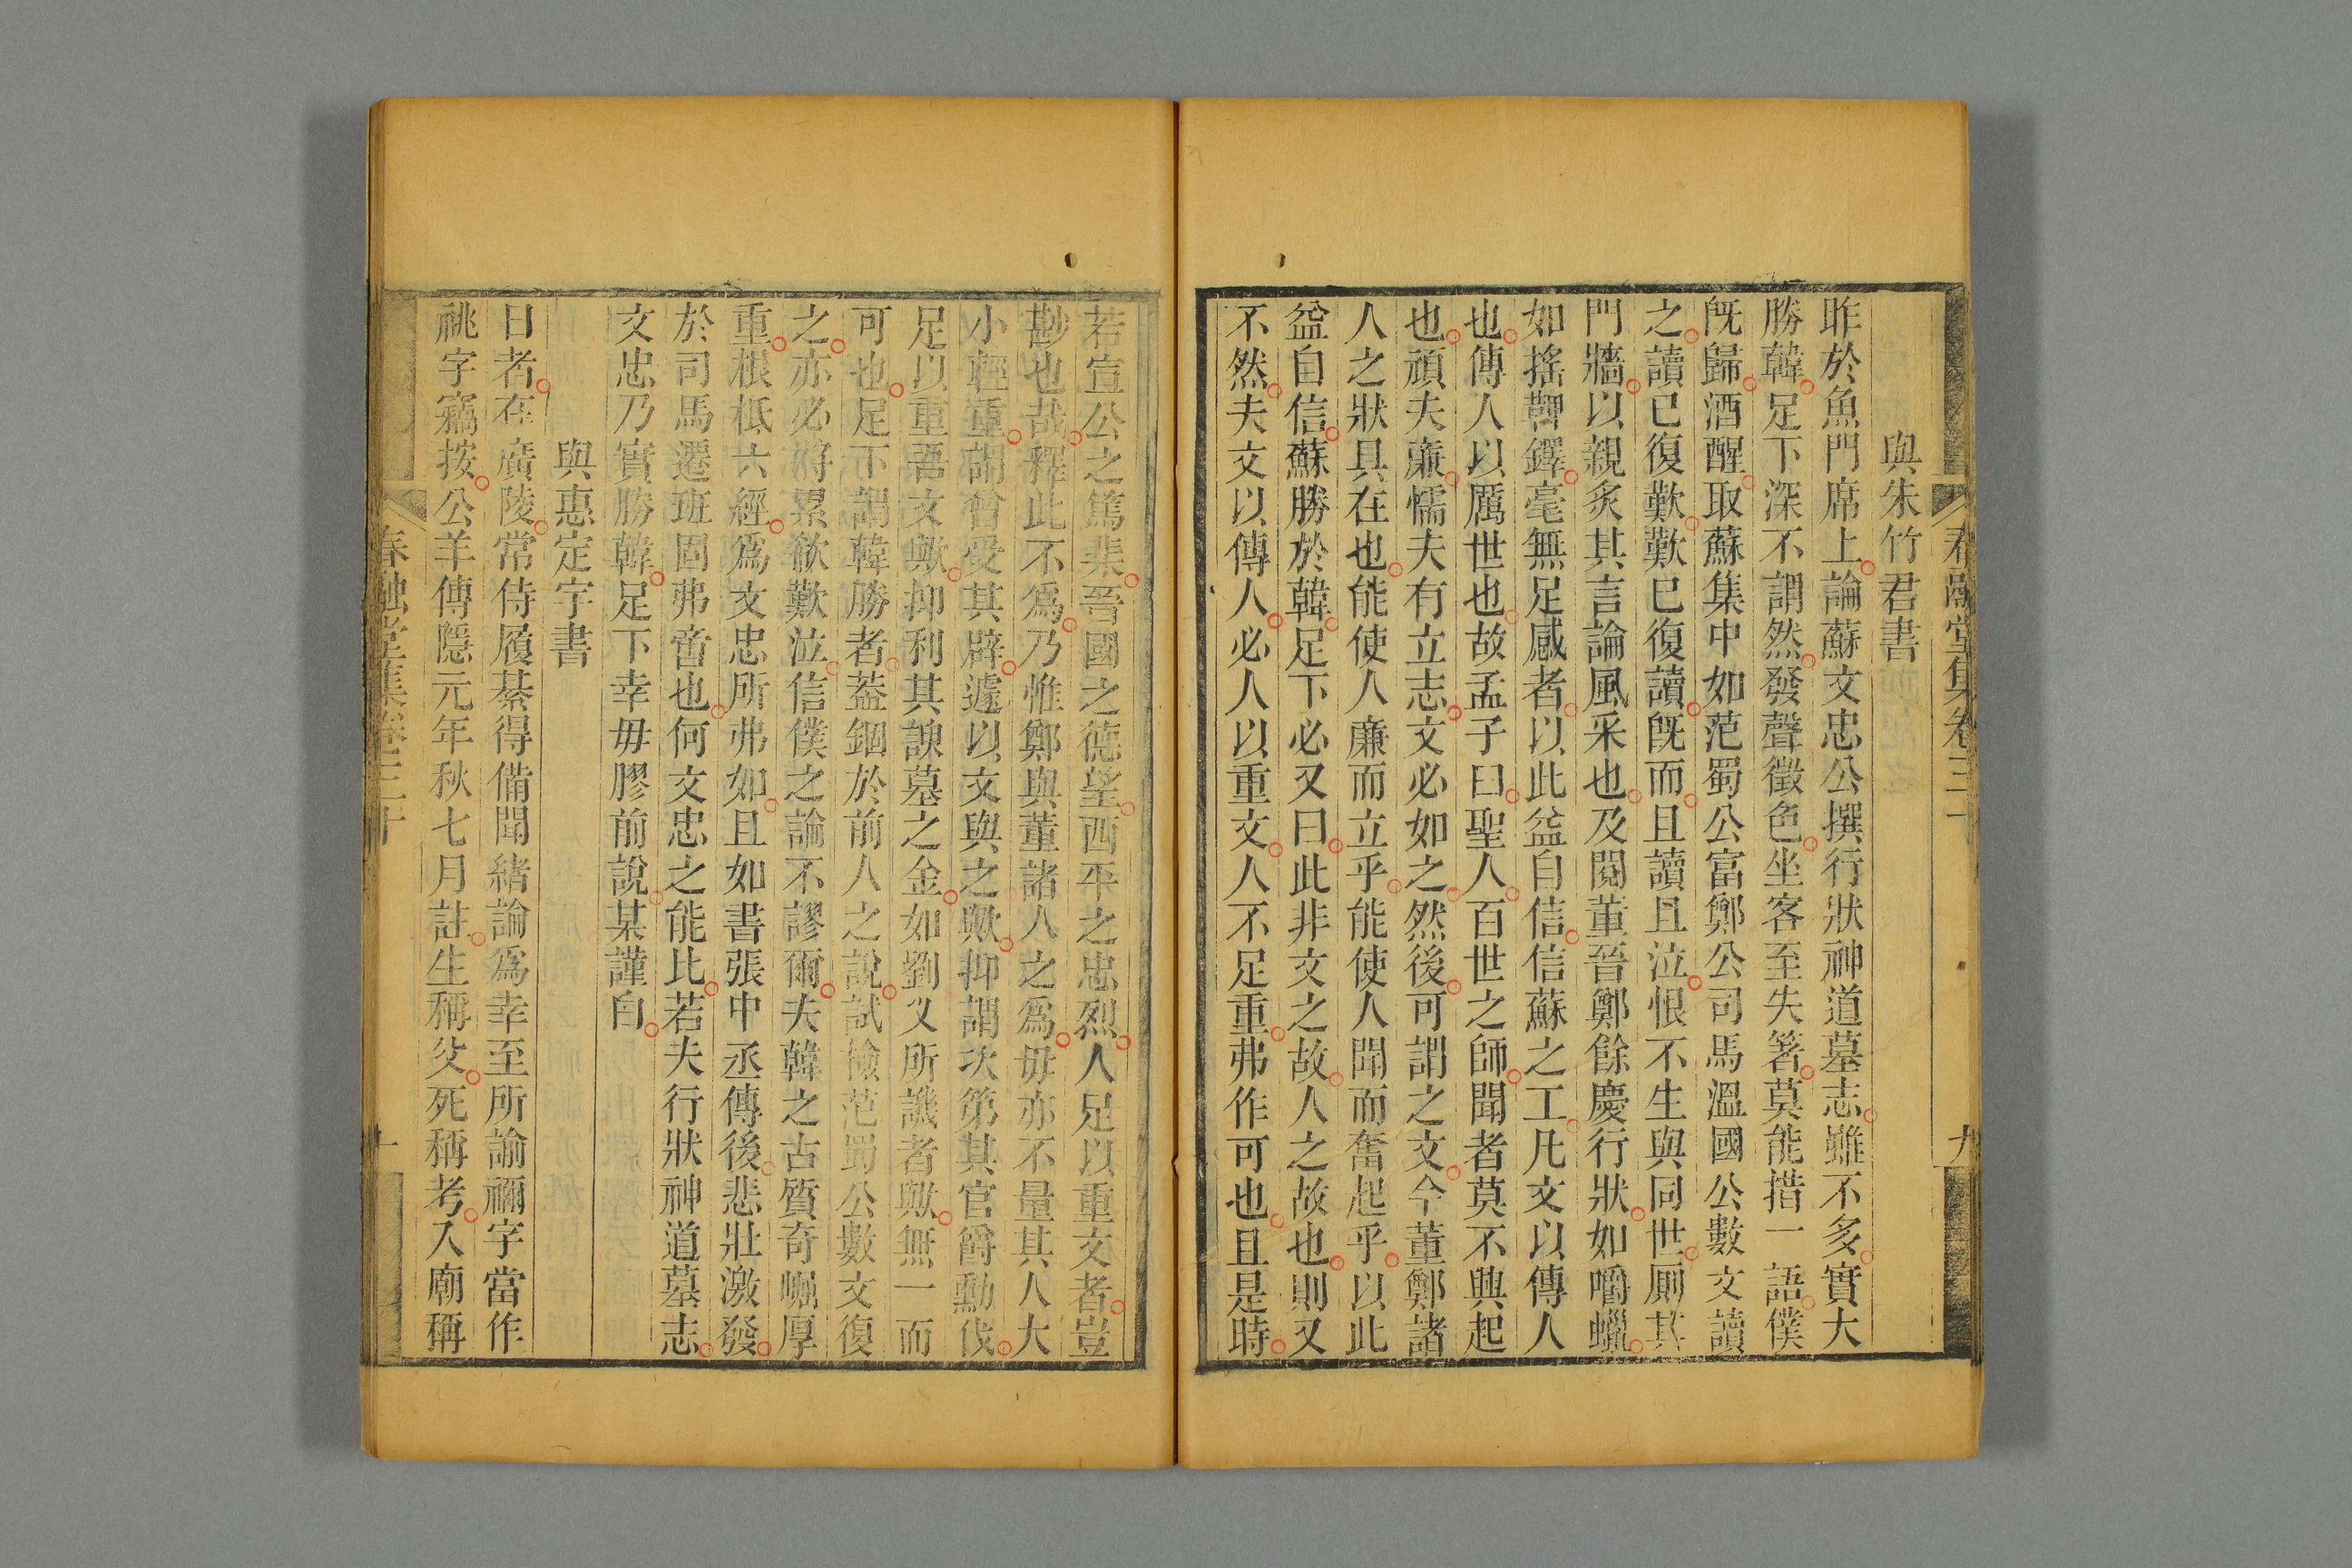 與朱竹君書
昨於魚門席上論蘇文忠公撰行狀神道墓志雖不多實大
勝韓足下深不謂然發聲徵色坐客至失箸莫能措一語僕
旣歸酒醒取蘇集中如范蜀公富鄭公司馬溫國公數文讀
之讀已復歎歎已復讀旣而且讀且泣恨不生與同世厠其
門牆以親炙其言論風采也及閱董晉鄭餘慶行狀如嚼蠟
如搖鞞鐸毫無足感者以此益自信信蘇之工凡文以傳人
也傳人以厲世也故孟子曰聖人百世之師聞者莫不興起
也頑夫廉懦夫有立志文必如之然後可謂之文今董鄭諸
人之狀具在也能使人廉而立乎能使人聞而奮起乎以此
益自信蘇勝於韓足下必又曰此非文之故人之故也則又
不然夫文以傳人必人以重文人不足重弗作可也且是時
春融堂集卷三十
九
若宣公之篤棐晉國之德望西平之忠烈人足以重文者豈
尠也哉釋此不爲乃惟鄭與董諸人之爲毋亦不量其人大
小輕重謂曾受其辟遽以文與之歟抑謂次第其官爵勳伐
足以重吾文歟抑利其諛墓之金如劉乂所譏者歟無一而
可也足下謂韓勝者蓋錮於前人之說試檢范蜀公數文復
之亦必將累欷歎泣信僕之論不謬爾夫韓之古質奇崛厚
重根柢六經爲文忠所弗如且如書張中丞傳後悲壯激發
於司馬遷班固弗啻也何文忠之能比若夫行狀神道墓志
文忠乃實勝韓足下幸毋膠前說某謹白
與惠定宇書
日者在廣陵常侍履綦得備聞緒論爲幸至所諭禰字當作
祧字竊按公羊傳隱元年秋七月註生稱父死稱考入廟稱
春融堂集卷三十
十